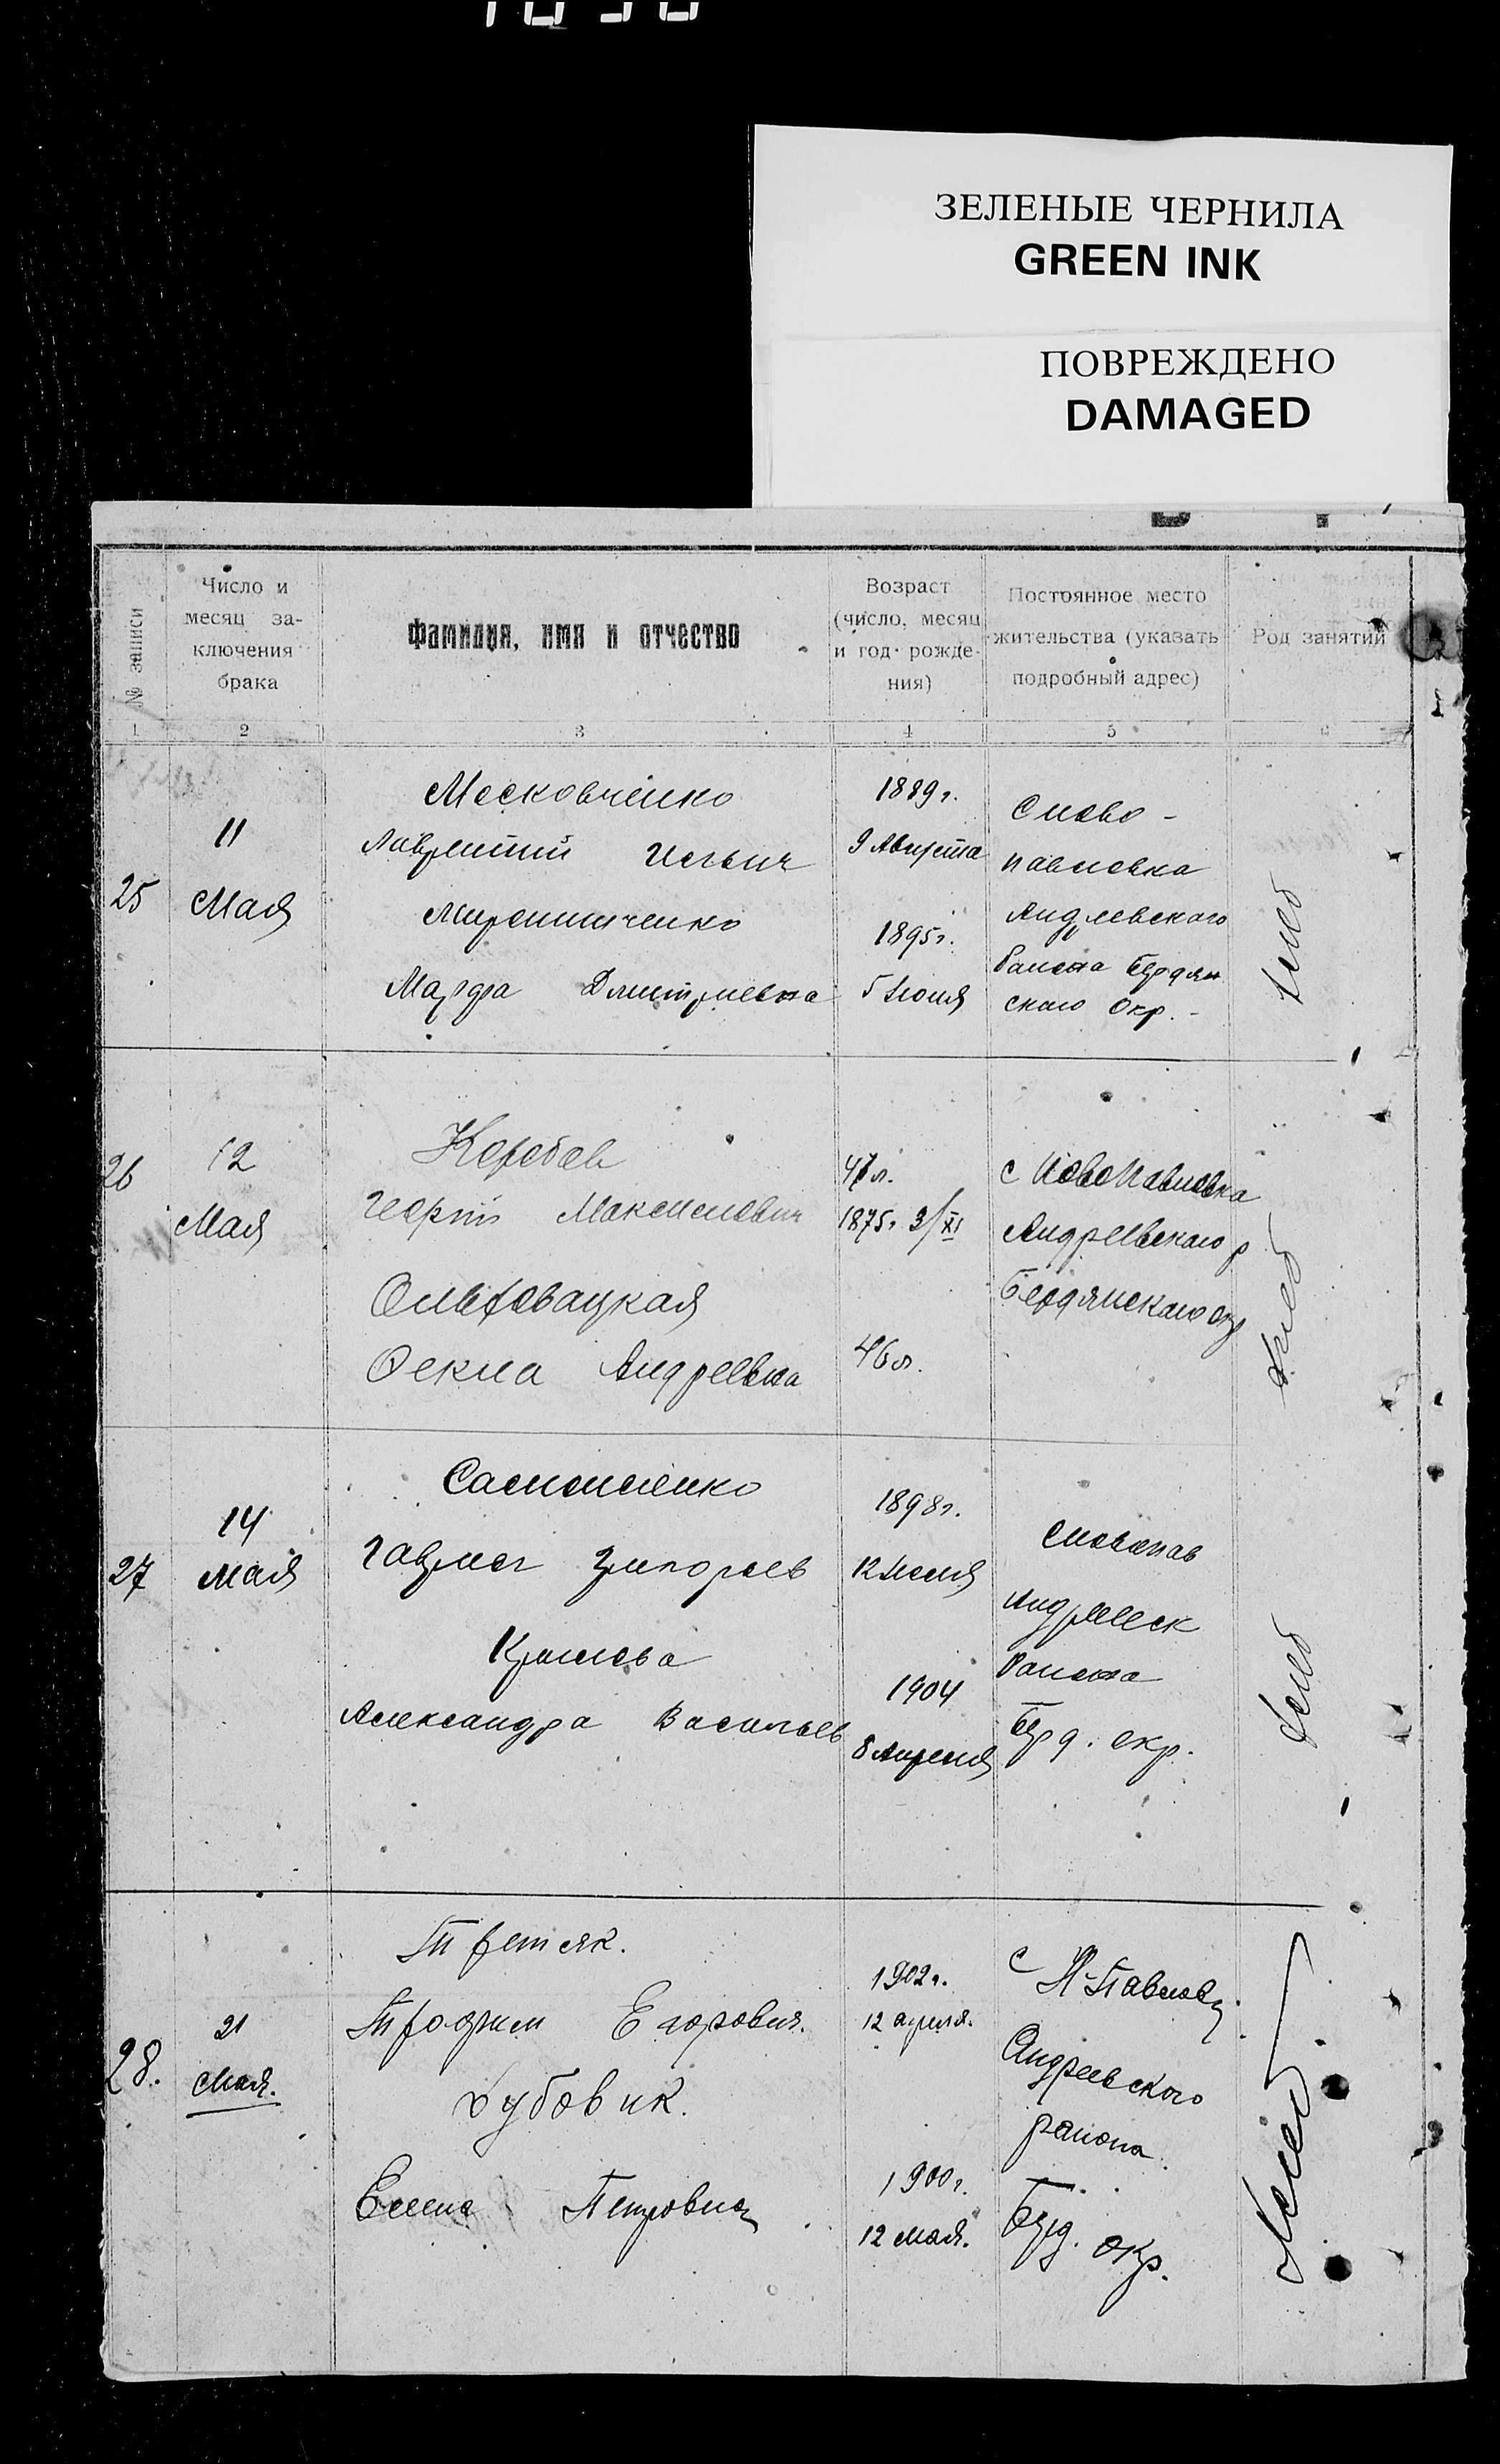 ЗЕЛЕНЫЕ ЧЕРНИЛА
GREEN INK
ПОВРЕЖДЕНО
DAMAGED
№ записи
Число и
месяц за-
ключения
брака
Фамилия, имя и отчество
Возраст
(число, месяц
и год рожде-
ния)
Постоянное место
жительства (указать
подробный адрес)
Род занятий
1 2 3 4 5
25
11
Мая
Московченко
Лаврентий Ильич
Мирошниченко
Марфа Дмитриевна
1889 г.
9 Августа
1895 г.
5 Июня
С Ново-
павловка
Андреевского
Района Бердян
ского Окр.
26
12
Мая
Коробов
Георгий Максимович
Ольховацкая
Фекла Андреевна
47 л.
1875 г 3/XI
46 л.
с НовоПавловка
Андреевского р
Бердянского окр
27
14
Мая
Самойленко
Гавриил Григорьев
Александра Васильев
1898 г.
12 Июля
1904
8 Апреля
С Новопав
Андреевск
Района
Берд. окр.
28.
21
Мая.
Третяк.
Трофим Егорович.
Дубовик.
Елена Петровна
1902 г.
12 апреля.
1900 г.
12 мая.
с Н-Павловк
Андреевского
района
Берд. окр.